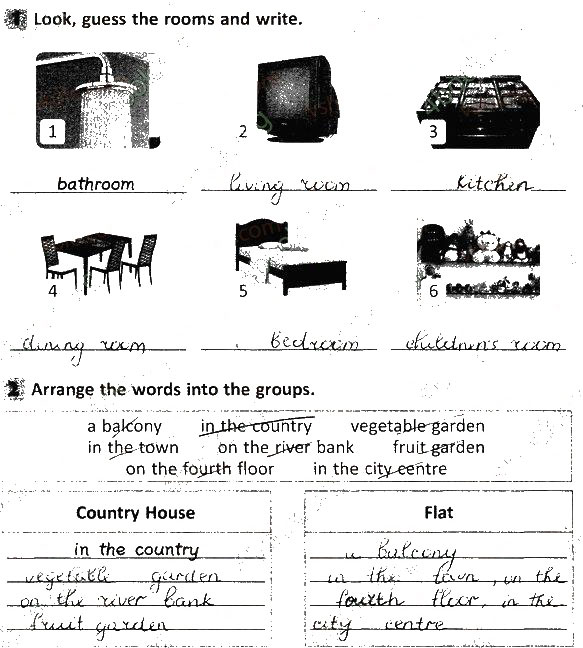 1 Look, guess the rooms and write.
1 2 3
bathroom living room kitchen
4 5 6
dining room bedroom children's room
2 Arrange the words into the groups.
a balcony in the country vegetable garden
in the town on the river bank fruit garden
on the fourth floor in the city centre
Country House
in the country
vegetable garden
on the river bank
fruit garden
Flat
a balcony
in the town, on the
fourth floor, in the
city centre